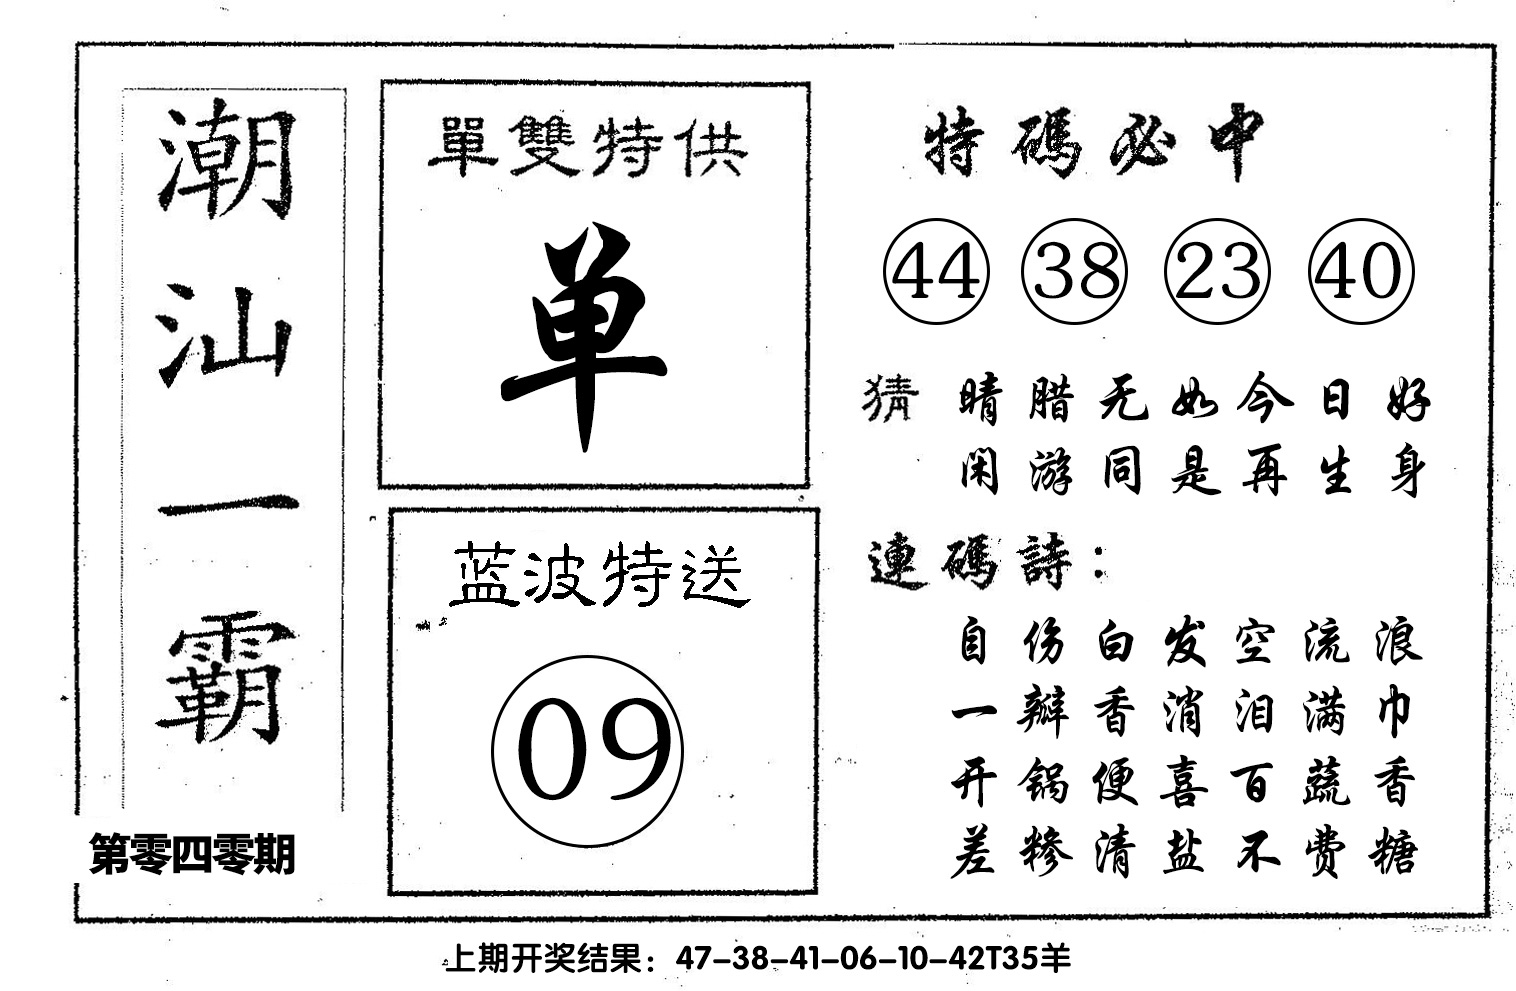 潮汕一霸
第零四零期
單雙特供
单
蓝波特送
09
特碼必中
44 38 23 40
猜 晴腊无如今日好
闲游同是再生身
連碼詩：
自伤白发空流浪
一瓣香消泪满巾
开锅便喜百蔬香
差糁清盐不费糖
上期开奖结果：47-38-41-06-10-42T35羊